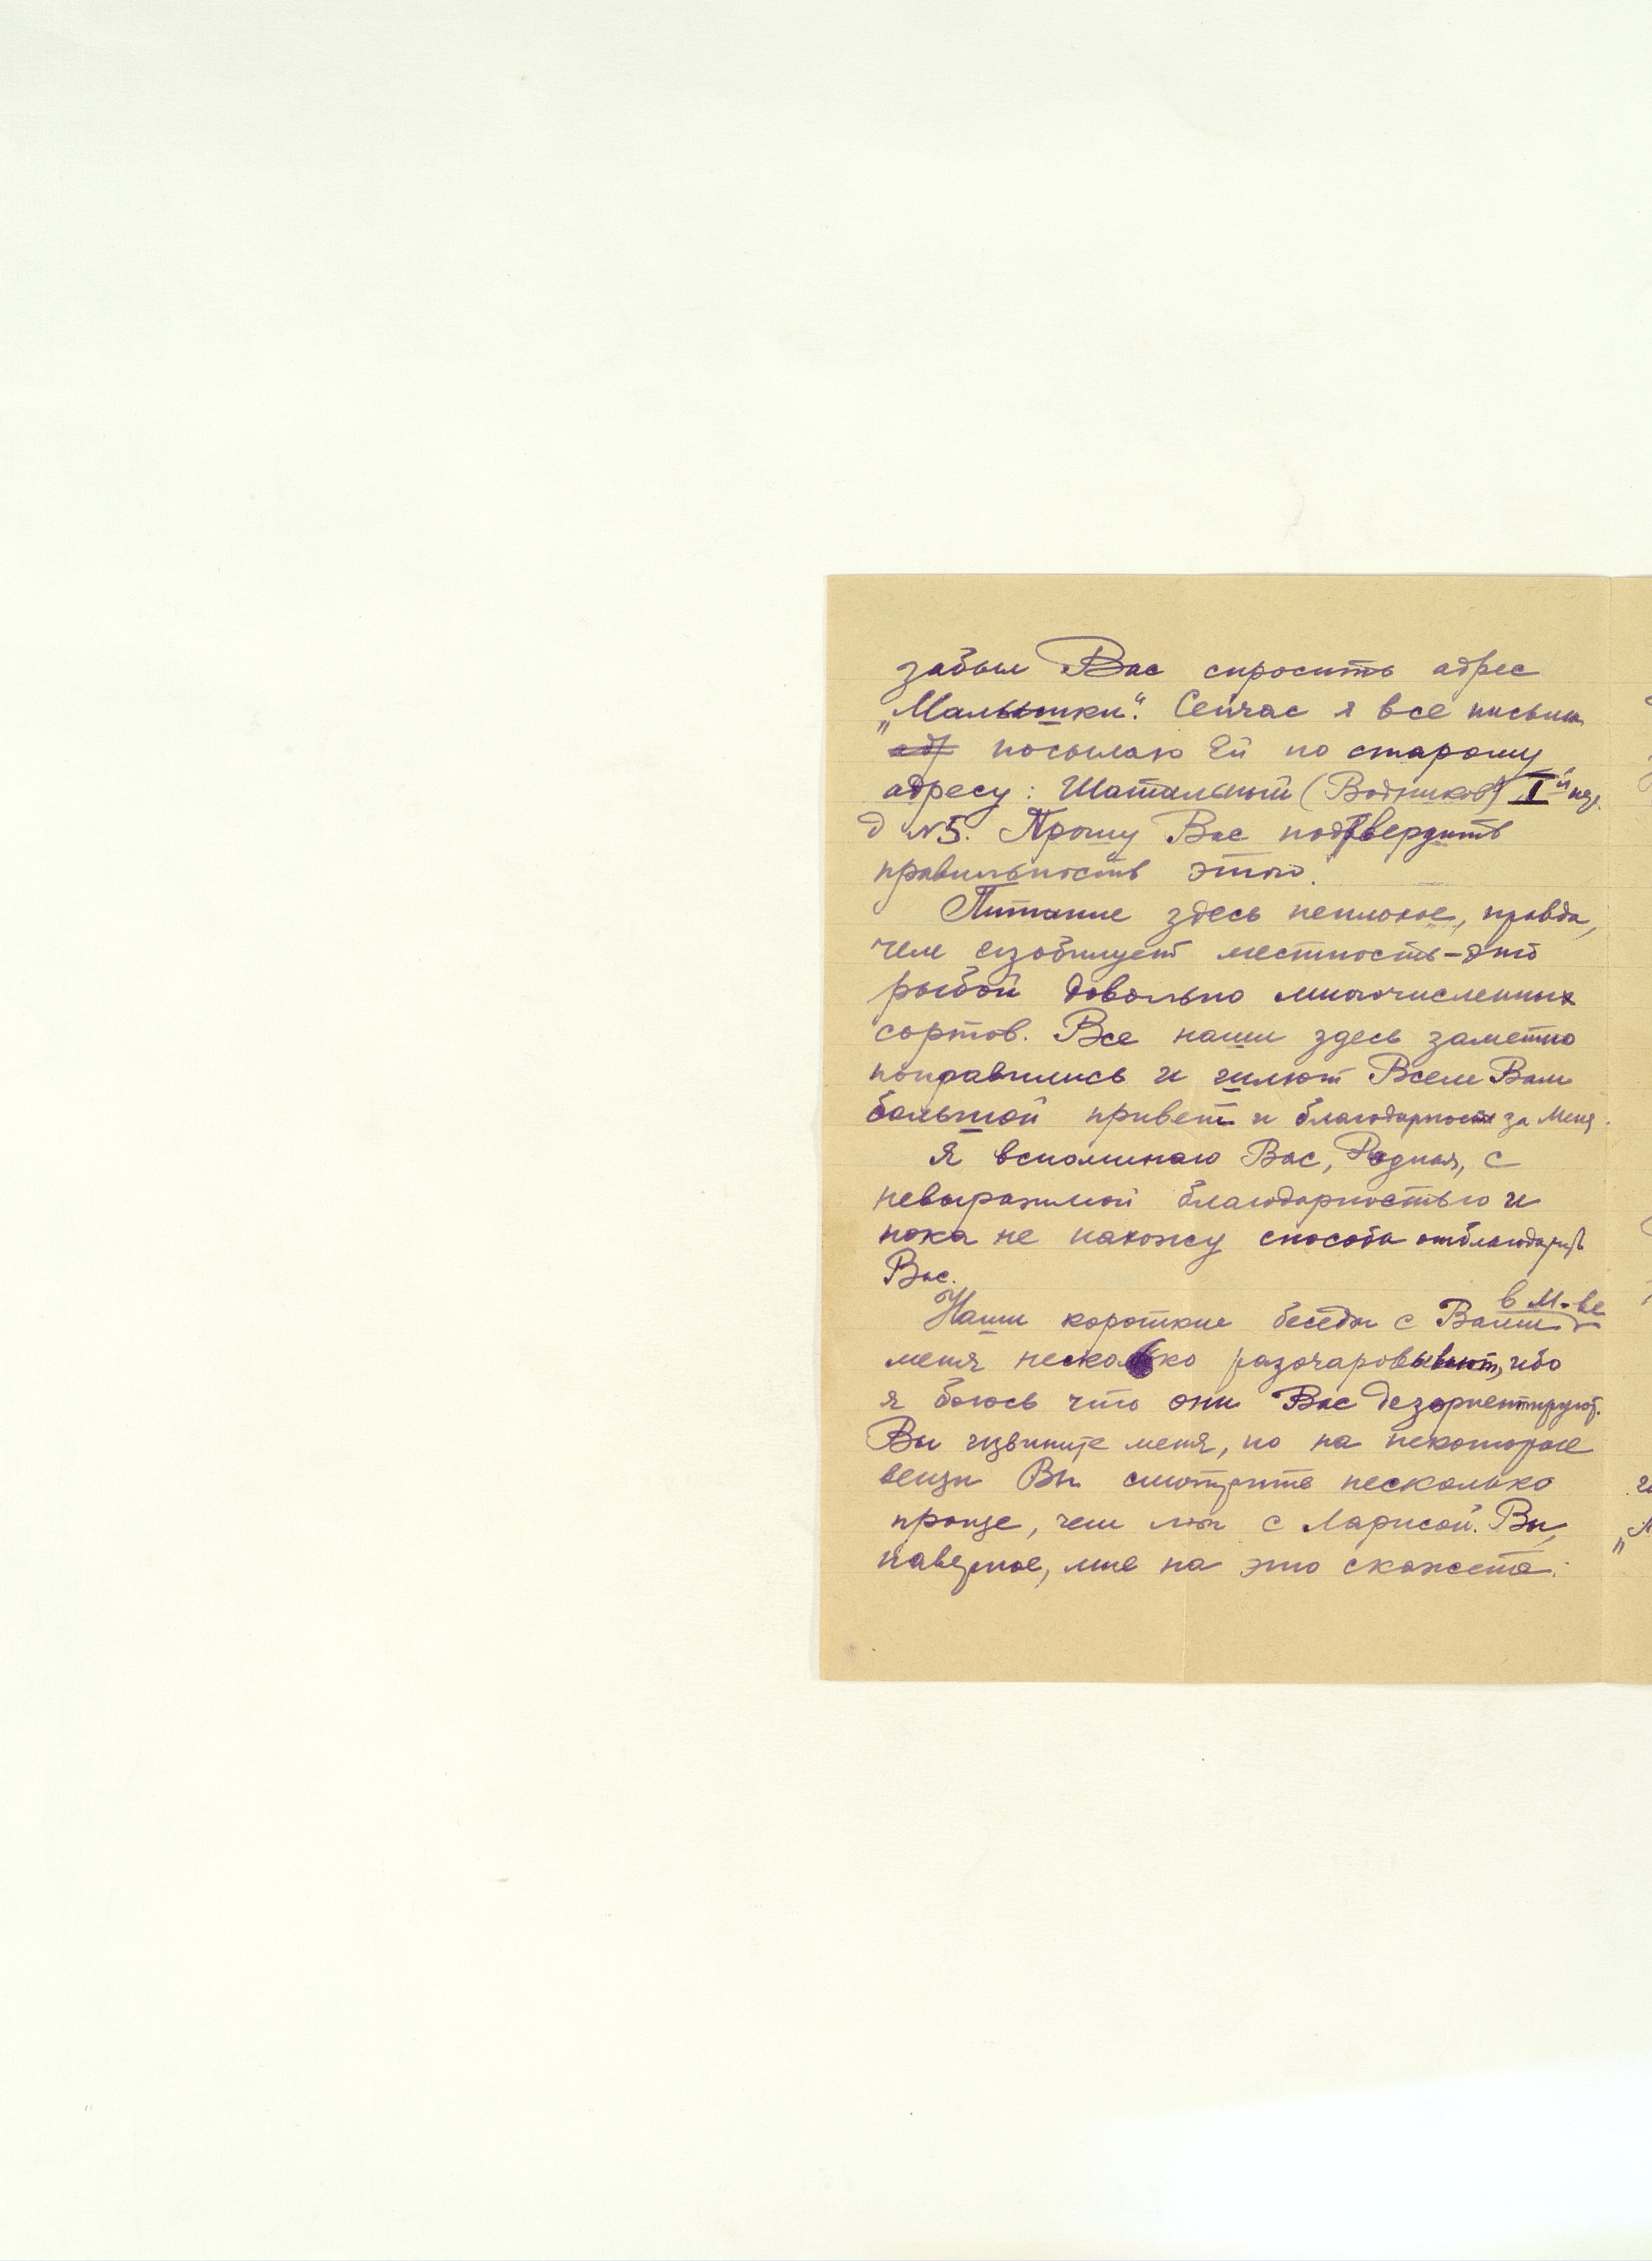 забыл Вас спросить адрес
„Малышки“. Сейчас я все письма
посылаю Ей по старому
адресу: Шатальный (Водников) I-й пер.
д №5. Прошу Вас подтвердить
правильность этого.
Питание здесь неплохое, правда,
чем изобилует местность-это
рыбой довольно многочисленных
сортов. Все наши здесь заметно
поправились и шлют Всем Вам
большой привет и благодарность за меня.
Я вспоминаю Вас, Родная, с
невыразимой благодарностью и
пока не нахожу способа отблагодарить
Вас.
Наши короткие беседы с Вами в М-ве
меня несколько разочаровывают, ибо
я боюсь что они Вас дезориентируют.
Вы извините меня, но на некоторые
вещи Вы смотрите несколько
проще, чем мы с Ларисой. Вы,
наверное, мне на это скажете: